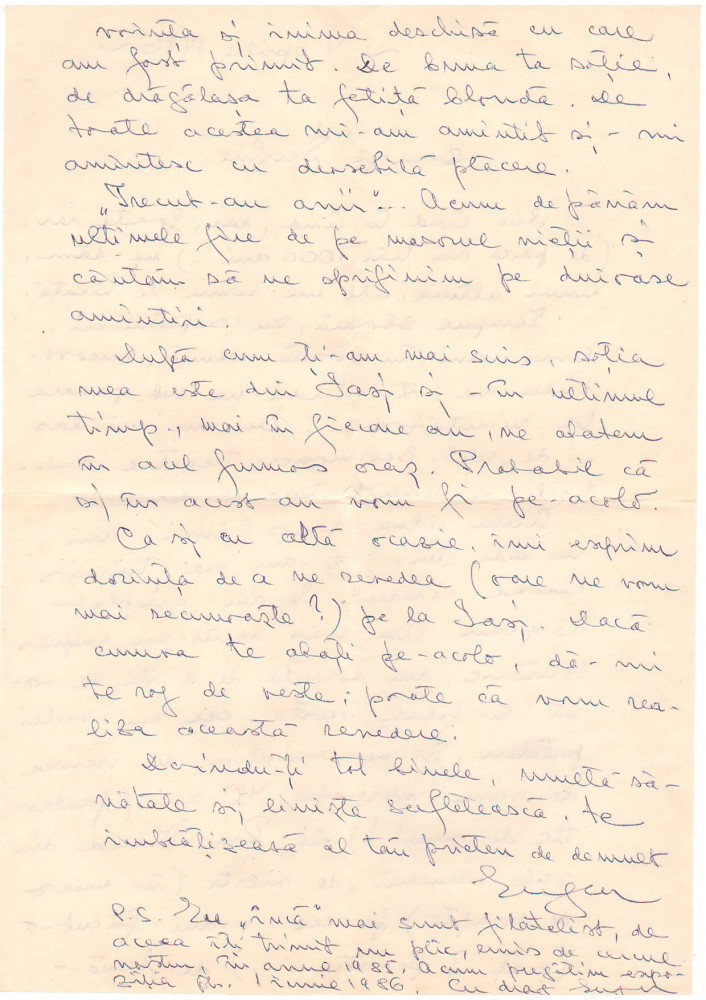 voința și inima deschisă cu care
am fost primit. De buna ta soție,
de drăgălașa ta fetiță blondă. De
toate acestea mi-am amintit și-mi
amintesc cu deosebită plăcere.
„Trecut-au anii"... Acum depănăm
ultimele fire de pe mosorul vieții și
căutăm să ne sprijinim pe duioase
amintiri.
După cum ți-am mai scris, soția
mea este din Iași și - în ultimul
timp, mai în fiecare an, ne abatem
în acel frumos oraș. Probabil că
și în acest an vom fi pe-acolo.
Ca și cu altă ocazie, îmi exprim
dorința de a ne revedea (oare ne vom
mai recunoaște?) pe la Iași. Dacă
cumva te abați pe-acolo, dă-mi
te rog de veste; poate că vom rea-
liza această revedere.
Dorindu-ți tot binele, multă să-
nătate și liniște sufletească, te
îmbrățișează al tău prieten de demult
Eugen
P.S. Eu „încă" mai sunt filatelist, de
aceea îți trimit un plic, emis de cercul
nostru, în anul 1985. Acum pregătim expo-
ziția pt. 1 iunie 1986. Cu drag Eugen